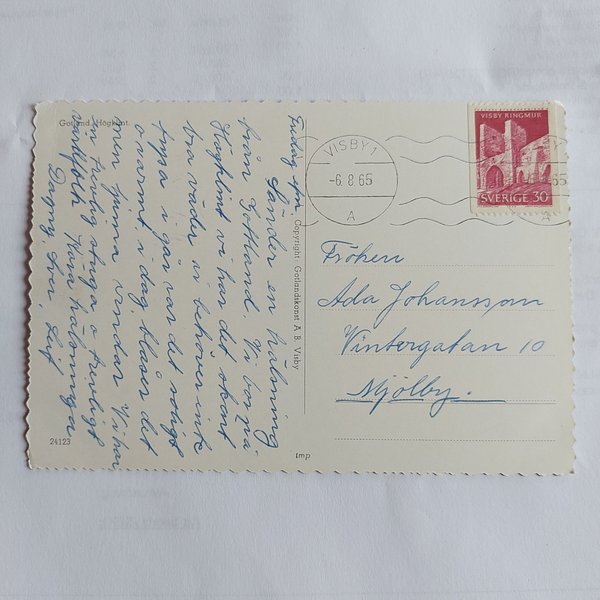 Gotland. Högklint.
Fredag fm.
Sänder en hälsning
från Gottland. Vi bor på
Högklint vi har det skönt
bra väder vi behöver inte
frysa i går var det soligt
o varmt, i dag blåser det
men ljumma vindar Vi har
en stuga o trevligt
Kära hälsningar
Dagny, Sven, Leif
24123
Copyright: Gotlandskonst A.B. Visby
imp
VISBY 1
-6.8.65
A
65
A
VISBY RINGMUR
SVERIGE 30
Fröken
Ada Johansson
Vintergatan 10
Mjölby.